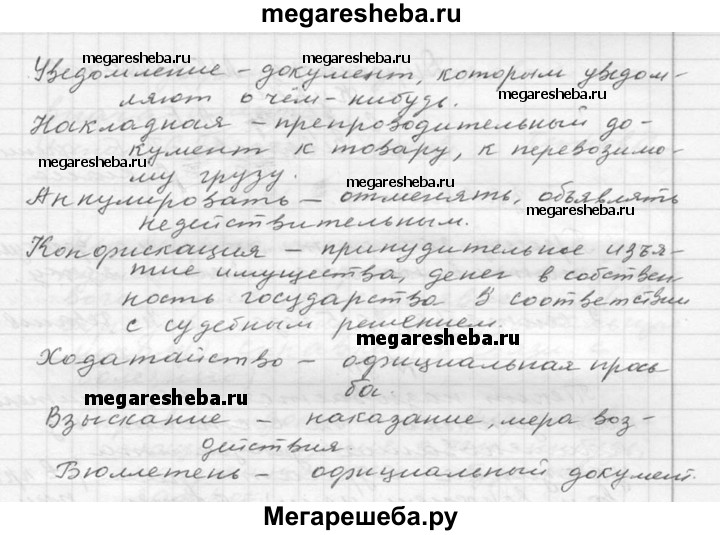 megaresheba.ru
megaresheba.ru
megaresheba.ru
Уведомление – документ, которым уведом-
megaresheba.ru
ляют о чём-нибудь.
Накладная – препроводительный до-
megaresheba.ru
кумент к товару, к перевозимо-
му грузу.
megaresheba.ru
Аннулировать – отменять, объявлять
megaresheba.ru
недействительным.
Конфискация – принудительное изъя-
тие имущества, денег в собствен
ность государства в соответствии
с судебным решением.
megaresheba.ru
Ходатайство – официальная прось
ба.
megaresheba.ru
Взыскание – наказание, мера воз-
действия.
Бюллетень – официальный документ.
Мегарешеба.ру